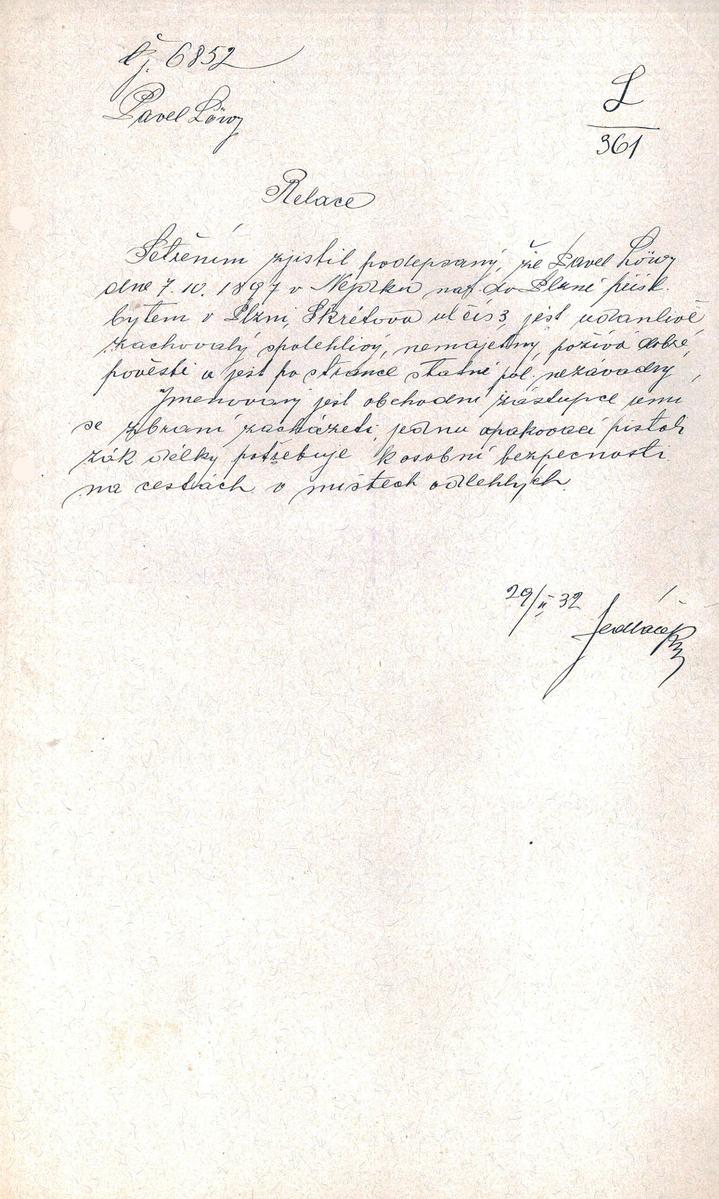 čj. 6852
Pavel Löwy
L
361
Relace
Šetřením zjistil podepsaný, že Pavel Löwy
dne 7.10.1897 v nar. do Plzně přísl.
bytem v Plzni, Škrétova ul čís 3, jest
zachovalý spolehlivý, nemajetný, požívá dobré
pověsti a jest po stránce státně pol. nezávadný
Jmenovaný jest obchodní zástupce umí
se zbraní zacházeti, jednu opakovací pistoli
zák délky potřebuje k osobní bezpečnosti
na cestách v místech odlehlých.
29/II 32
Jedláček